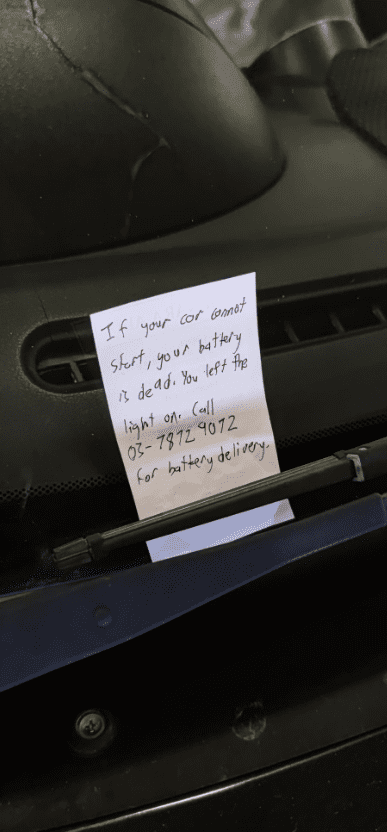 If your car cannot
start, your battery
is dead. You left the
light on. Call
03-7872 9072
for battery delivery.